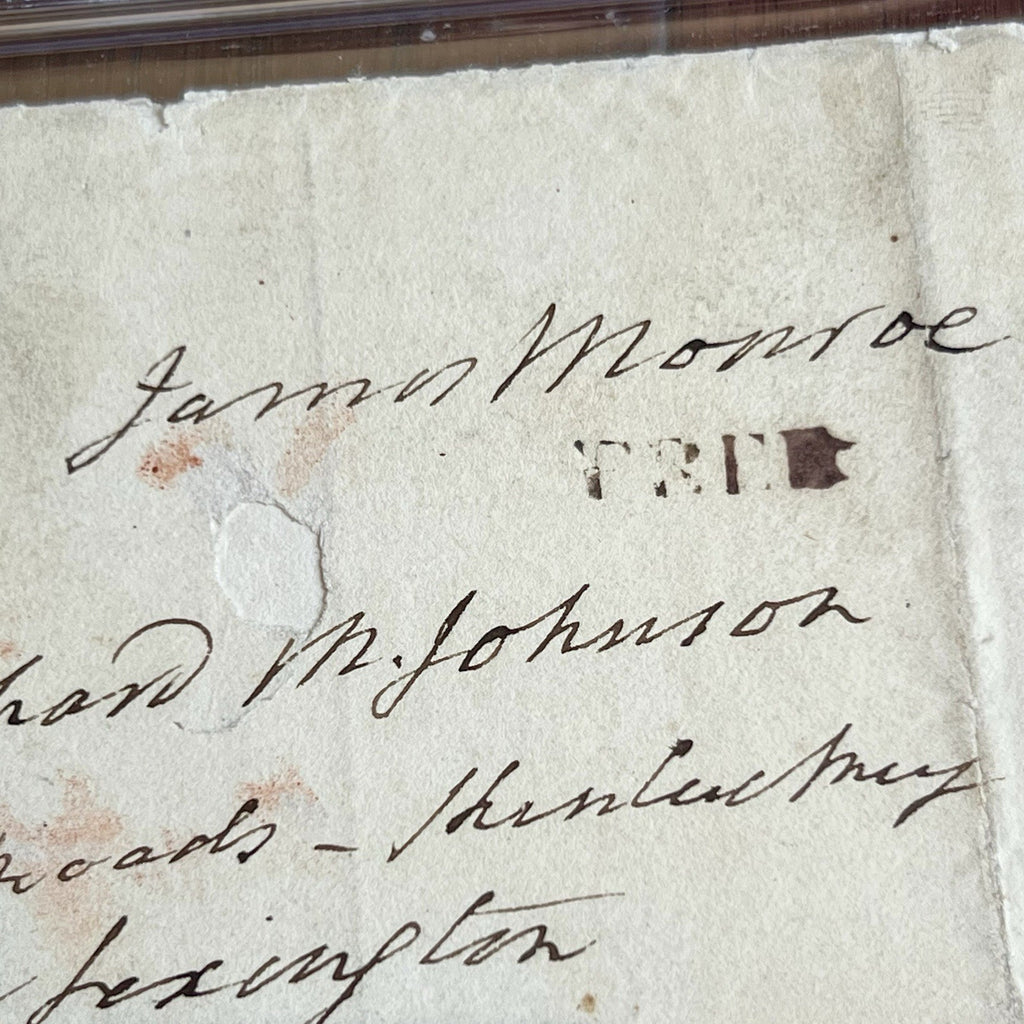 James Monroe
FREE
hard M. Johnson
roads - Kentuckey
Lexington